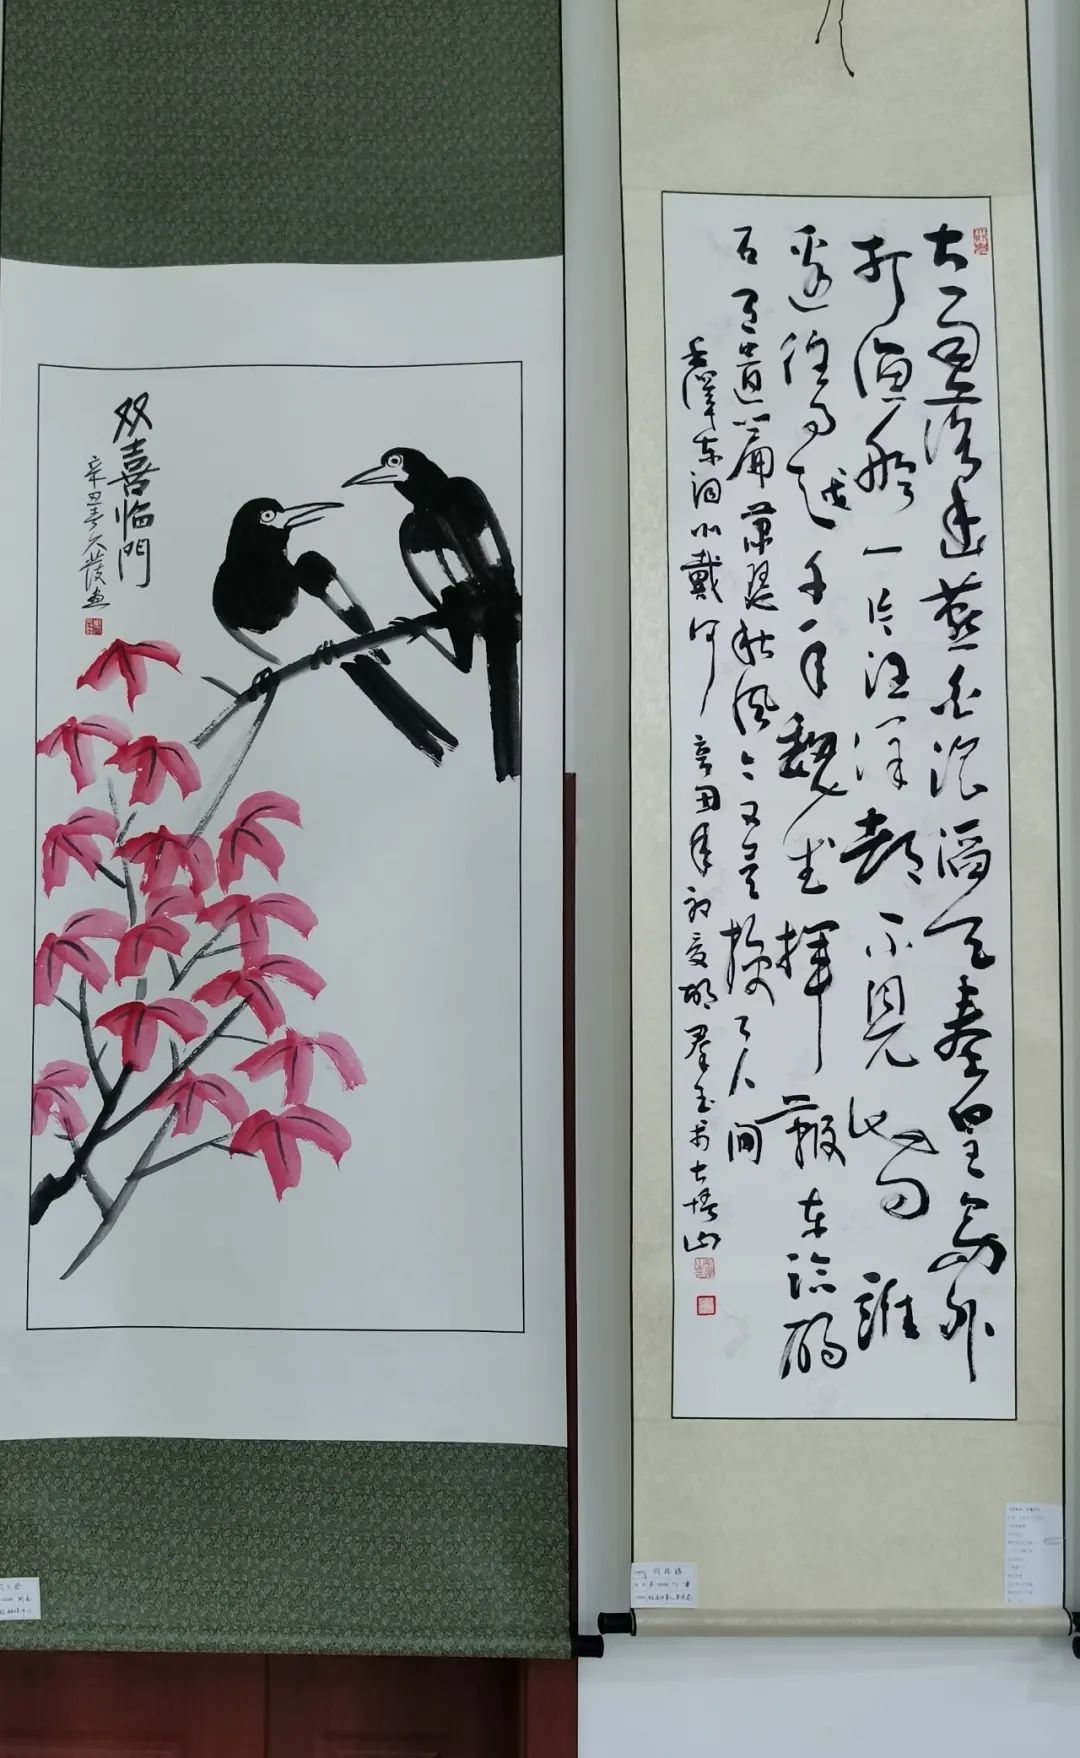 双喜临門
辛丑春久發画
大雨落幽燕白浪滔天秦皇島外
打渔船一片汪洋都不见知向誰
边往事越千年魏武揮鞭东临碣
石有遗篇萧瑟秋风今又是換了人间
毛泽东词北戴河 辛丑年初夏